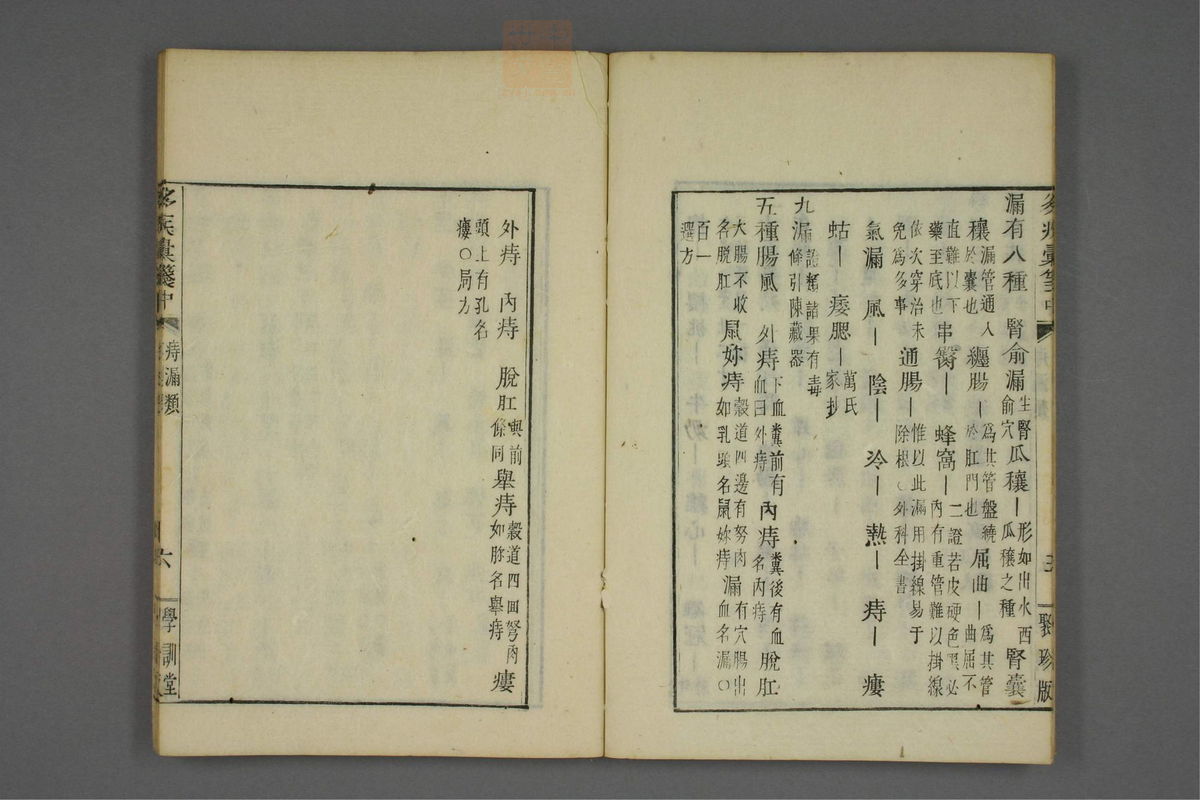 聚珍版
漏有八種 腎俞漏 生腎俞穴 瓜穰丨 形如出水西瓜穰之種 腎囊
穰 漏管通入於囊也 纏腸丨 為其管盤繞於肛門也 屈曲丨 為其管曲屈不
直難以下藥至底也 串臀丨 蜂窩丨 二證若皮硬色黑必內有重管難以掛線
依次穿治未免為多事 通腸丨 惟以此漏用掛線易于除根○外科全書
氣漏 風丨 陰丨 冷丨 熱丨 痔丨 瘻
蛄丨 痿腮丨 萬氏家抄
九漏 證類諸果有毒條引陳藏器
五種腸風 外痔 下血糞前有血曰外痔 內痔 糞後有血名內痔 脫肛
大腸不收名脫肛 鼠妳痔 穀道四邊有努肉如乳頭名鼠妳痔 漏 有穴腸出血名漏○
百一選方
外痔 內痔 脫肛 與前條同 舉痔 穀道四回努肉如胗名舉痔 瘻
頭上有孔名瘻○局方
痔漏類 六 學訓堂